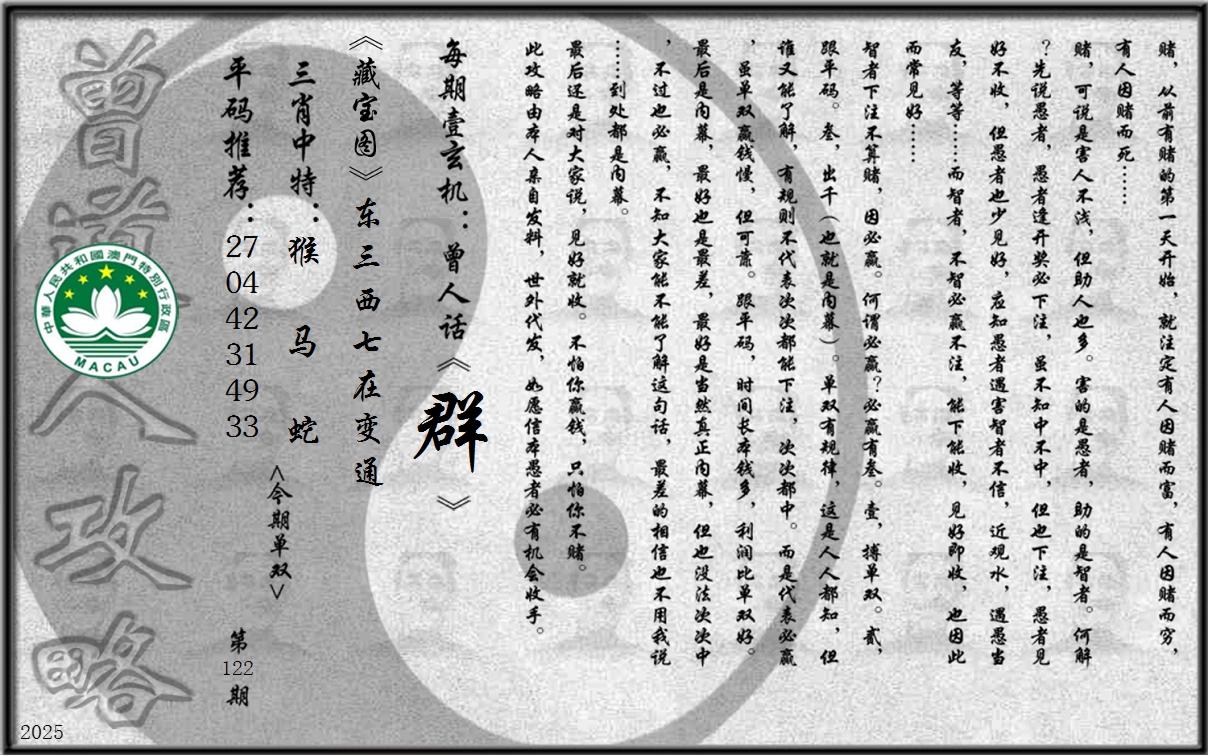 赌，从前有赌的第一天开始，就注定有人因赌而富，有人因赌而穷，
有人因赌而死……
赌，可说是害人不浅，但助人也多。害的是愚者，助的是智者。何解
？先说愚者，愚者逢开奖必下注，虽不知中不中，但也下注，愚者见
好不收，但愚者也少见好，应知愚者遇害智者不信，近观水，遇愚当
友，等等……而智者，不智必赢不注，能下能收，见好即收，也因此
而常见好……
智者下注不算赌，因必赢。何谓必赢？必赢有叁。壹，搏单双。贰，
跟平码。叁，出千（也就是内幕）。单双有规律，这是人人都知，但
谁又能了解，有规则不代表次次都能下注，次次都中。而是代表必赢
，虽单双赢钱慢，但可靠。跟平码，时间长本钱多，利润比单双好。
最后是内幕，最好也是最差，最好是当然真正内幕，但也没法次次中
，不过也必赢，不知大家能不能了解这句话，最差的相信也不用我说
……到处都是内幕。
最后还是对大家说，见好就收。不怕你赢钱，只怕你不赌。
此攻略由本人亲自发料，世外代发，如愿信本愚者必有机会收手。
每期壹玄机：曾人话《群》
《藏宝图》东三西七在变通
三肖中特：猴 马 蛇
<今期单双>
平码推荐：27 04 42 31 49 33
第122期
曾道人攻略
中華人民共和國澳門特別行政區
MACAU
2025